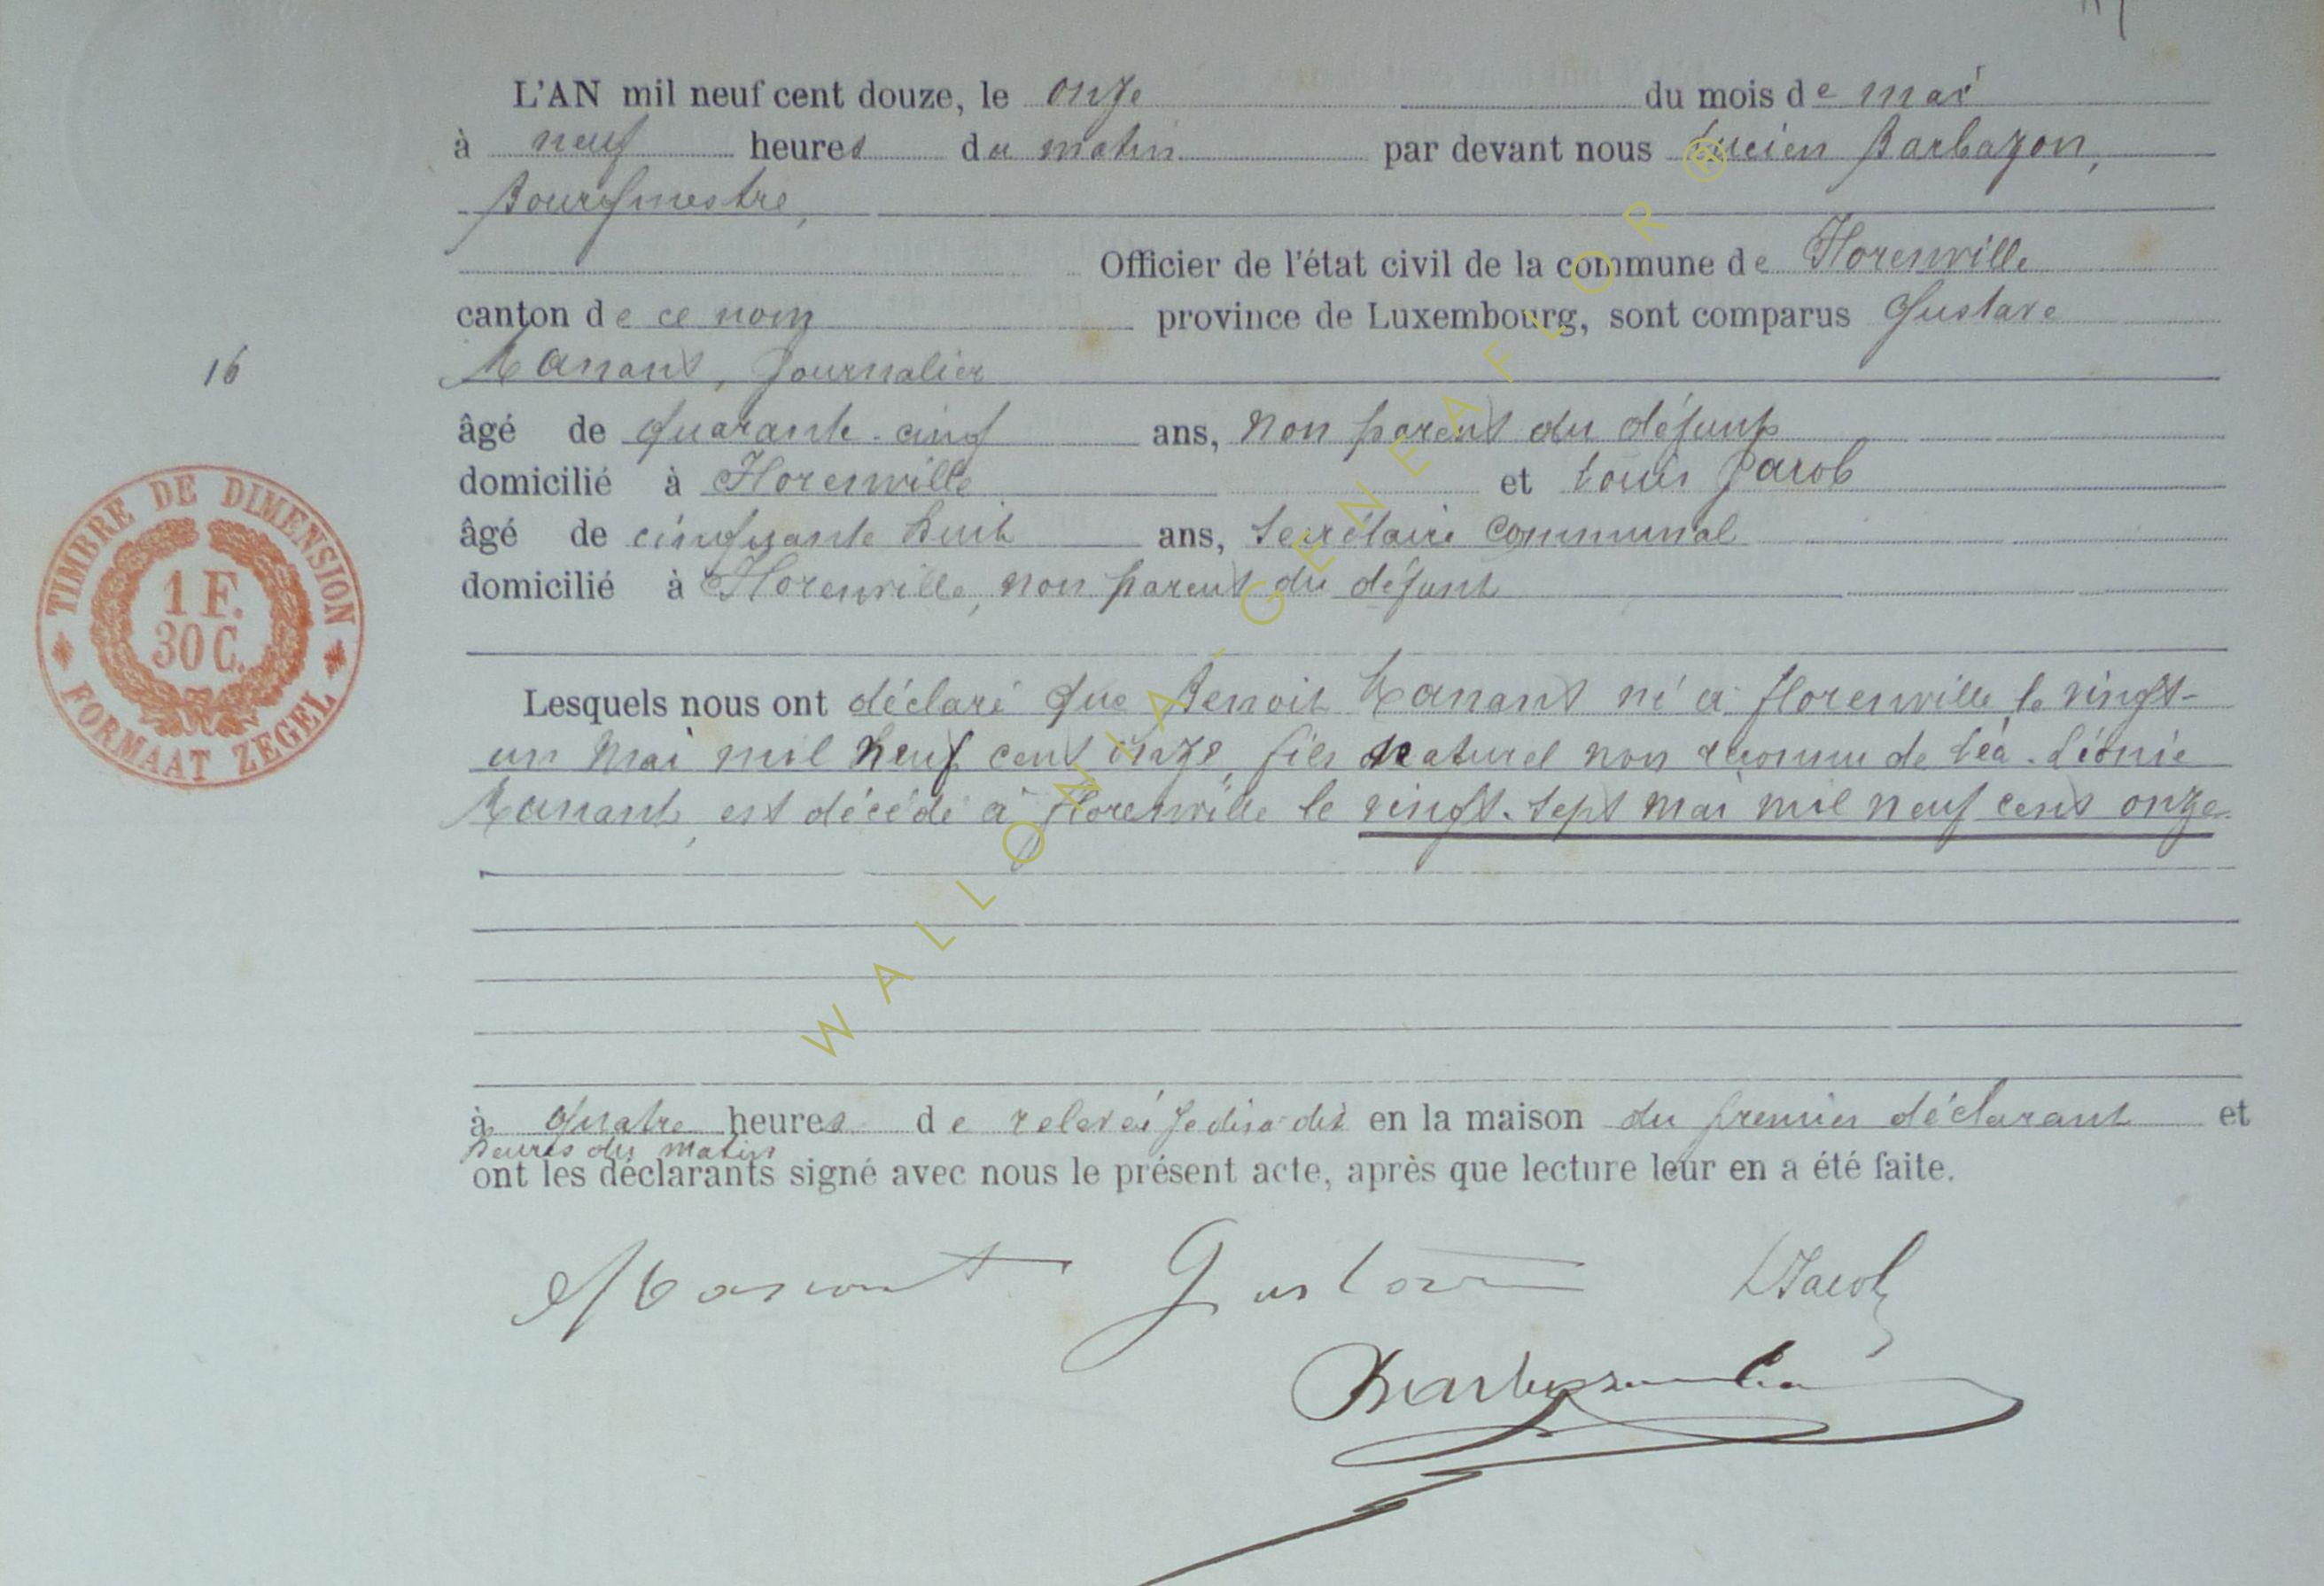 L'AN mil neuf cent douze, le onze du mois de mai
à neuf heures du matin par devant nous Lucien Barbazon,
Bourgmestre,
Officier de l'état civil de la commune de Florenville
canton de ce nom province de Luxembourg, sont comparus Gustave
Manant, Journalier
16
âgé de quarante-cinq ans, non parent du défunt
domicilié à Florenville et Louis Jacob
âgé de cinquante huit ans, Secrétaire Communal
domicilié à Florenville, non parent du défunt
TIMBRE DE DIMENSION
1 F.
30 C.
FORMAAT ZEGEL
Lesquels nous ont déclaré que Benoit Manant né à Florenville le vingt-
un Mai mil neuf cent onze, fils naturel non reconnu de Léa-Léonie
Manant, est décédé à Florenville le vingt-sept Mai mil neuf cent onze
à quatre heures de relevée je dis dix en la maison du premier déclarant et
heures du matin
ont les déclarants signé avec nous le présent acte, après que lecture leur en a été faite.
Manant Gustave LJacob
WALLONIA-GENEAFLOR ®